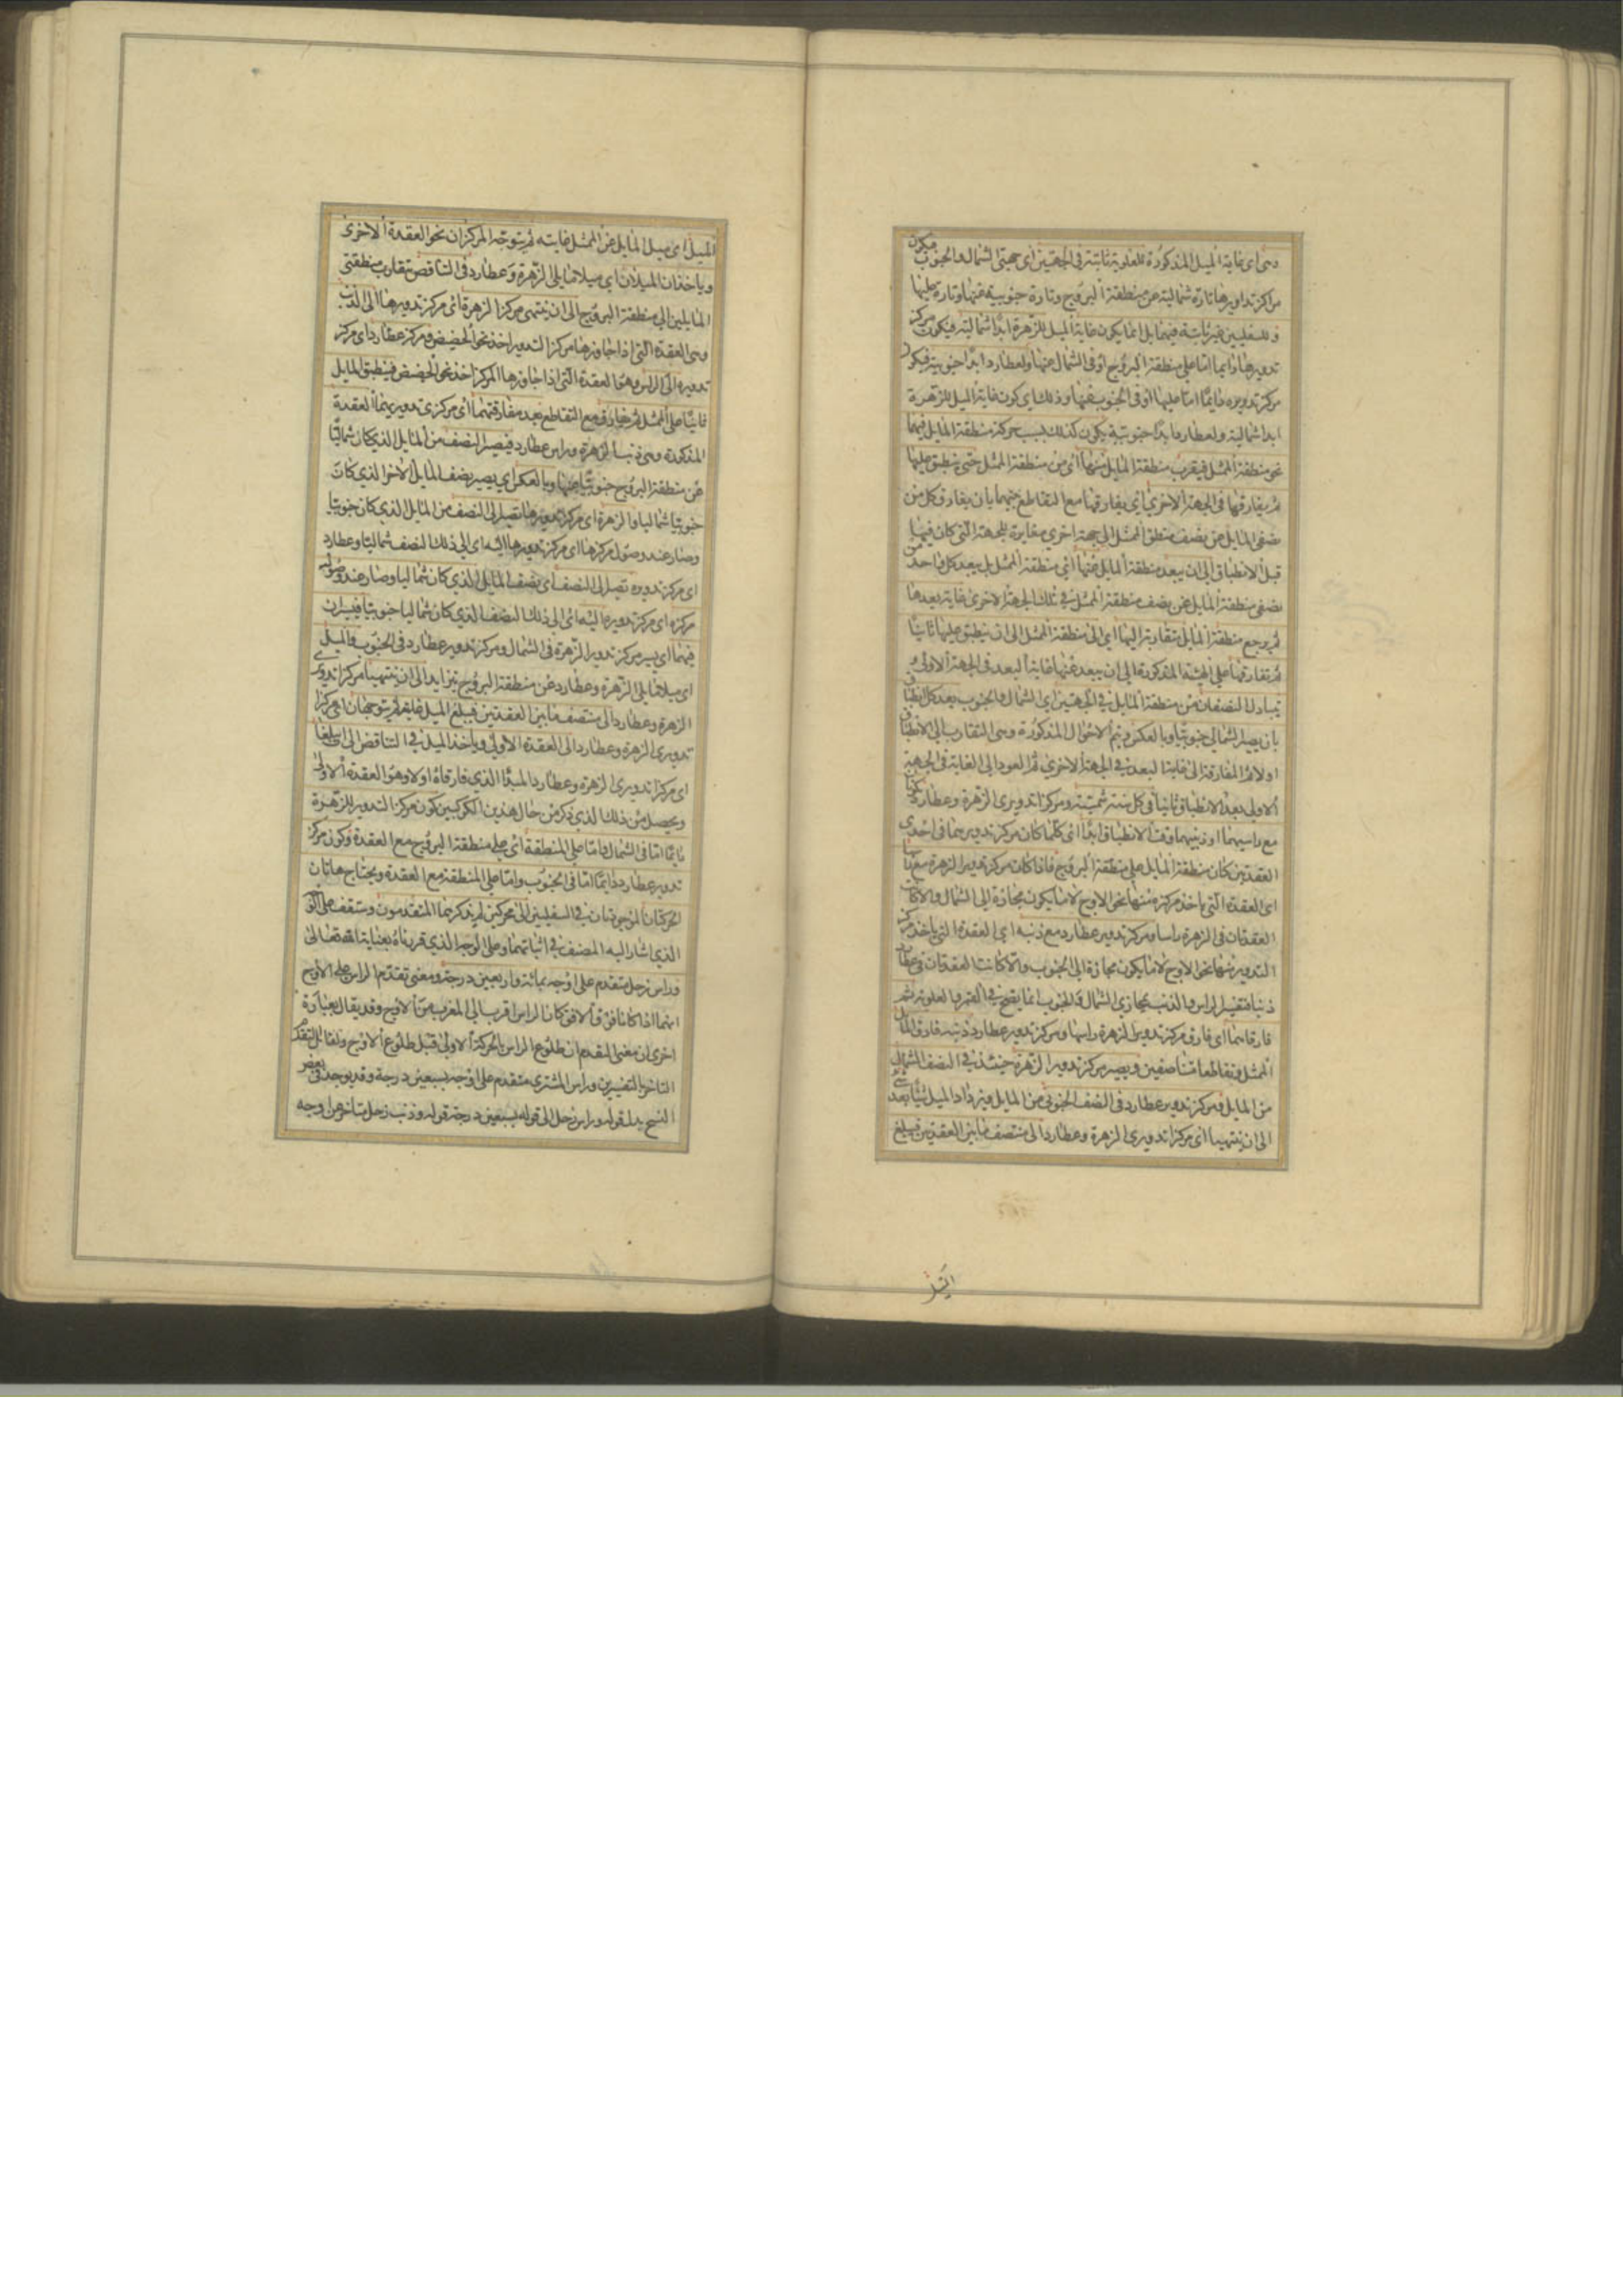 وهى اى غاية الميل المذكورة للعلوية ثابتة فى الجهتين اى جهتى الشمال والجنوب فيكون
مراكز تداويرها تارة شمالية عن منطقة البروج وتارة جنوبية عنها وتارة عليها
وللسفليين غير ثابتة فيهما بل انما يكون غاية الميل للزهرة ابدا شمالية فيكون مركز
تدويرها دايما اما على منطقة البروج او فى الشمال عنها ولعطارد ابدا جنوبية فيكون
مركز تدويره دايما اما عليها او فى الجنوب عنها وذلك اى كون غاية الميل للزهرة
ابدا شمالية ولعطارد ابدا جنوبية يكون كذلك بسبب حركة منطقة المايل فيهما
نحو منطقة الممثل فيقرب منطقة المايل منها اى من منطقة الممثل حتى ينطبق عليها
ثم يفارقها فى الجهة الاخرى اى يفارقها مع التقاطع بينهما بان يفارق كل من
نصفى المايل عن نصف منطقة الممثل الى جهة اخرى مغايرة للجهة التى كان فيها
قبل الانطباق الى ان يبعد منطقة المايل عنها اى منطقة الممثل بل يبعد كل واحد من
نصفى منطقة المايل عن نصف منطقة الممثل فى تلك الجهة الاخرى غاية بعدها
ثم يرجع منطقة المايل متقاربة اليها اى الى منطقة الممثل الى ان ينطبق عليها ثانيا
ثم تفارقها على الهيئة المذكورة الى ان يبعد عنها غاية البعد فى الجهة الاولى و
يتبادل النصفان من منطقة المايل فى الجهتين اى الشمال والجنوب بعد كل انطباق
بان يصير الشمالى جنوبيا وبالعكس ويتم الاحوال المذكورة وهى التقارب الى الانطباق
اولا ثم المفارقة الى غاية البعد فى الجهة الاخرى ثم العود الى الغاية فى الجهة
الاولى بعد الانطباق ثانيا فى كل سنة شمسية ومركزا تدويرى الزهرة وعطارد يكونا
مع راسيهما او ذنبيهما وقت الانطباق ابدا اى كلما كان مركز تدويريهما فى احدى
العقدتين كان منطقة المايل على منطقة البروج فاذا كان مركز تدوير الزهرة مع راسها
اى العقدة التى ياخذ مركزه منها نحو الاوج لا ما يكون مجازة الى الشمال والا كانت
العقدتان فى الزهرة راسا ومركز تدوير عطارد مع ذنبه اى العقدة التى ياخذ مركز
التدوير منها نحو الاوج لا ما يكون مجازة الى الجنوب والا كانت العقدتان فى عطارد
ذنبا فتفسير الراس والذنب بمجازى الشمال والجنوب انما يصح فى القمر والعلوية ثم
فارقاهما اى فارق مركز تدوير الزهرة راسها ومركز تدوير عطارد ذنبه فارق المايل
الممثل فتقاطعا متناصفين ويصير مركز تدوير الزهرة حينئذ فى النصف الشمالى
من المايل ومركز تدوير عطارد فى النصف الجنوبى من المايل فيزداد الميل شيئا بعد شئ
الى ان ينتهيا اى مركزا تدويرى الزهرة وعطارد الى منتصف ما بين العقدتين فيبلغ
الميل
الميل اى ميل المايل عن الممثل غايته ثم يتوجه المركزان نحو العقدة الاخرى
وياخذان الميلان اى ميلا مايلى الزهرة وعطارد فى التناقص بتقارب منطقتى
المايلين الى منطقة البروج الى ان ينتهى مركز الزهرة اى مركز تدويرها الى الذنب
وهى العقدة التى اذا جاوزها مركز التدوير اخذ نحو الحضيض ومركز عطارد اى مركز
تدويره الى الراس وهو العقدة التى اذا جاوزها المركز اخذ نحو الحضيض فينطبق المايل
ثانيا على الممثل ثم يفارق مع التقاطع بعد مفارقتهما اى مركزى تدويريهما العقدة
المذكورة وهى ذنب الزهرة وراس عطارد فيصير النصف من المايل الذى كان شماليا
عن منطقة البروج جنوبيا عنها وبالعكس اى يصير نصف المايل الاخر الذى كان
جنوبيا شماليا والزهرة اى مركز تدويرها تصير الى النصف من المايل الذى كان جنوبيا
وصار عند وصول مركزها اى مركز تدويرها اليه اى الى ذلك النصف شماليا وعطارد
اى مركز تدويره تصير الى النصف اى نصف المايل الذى كان شماليا وصار عند وصول
مركزه اى مركز تدويره اليه اى الى ذلك النصف الذى كان شماليا جنوبيا فيسيران
فيهما اى يسير مركز تدوير الزهرة فى الشمال ومركز تدوير عطارد فى الجنوب والميل
اى ميلا مايلى الزهرة وعطارد عن منطقة البروج يتزايد الى ان ينتهيا مركزا تدويرى
الزهرة وعطارد الى منتصف ما بين العقدتين فيبلغ الميل غايته ثم يتوجهان اى مركزا
تدويرى الزهرة وعطارد الى العقدة الاولى وياخذ الميل فى التناقص الى ان يبلغا
اى مركزا تدويرى الزهرة وعطارد المبدا الذى فارقاه اولا وهو العقدة الاولى
ويحصل من ذلك الذى ذكر من حال هذين الكوكبين كون مركز التدوير للزهرة
دايما اما فى الشمال واما على المنطقة اى على منطقة البروج مع العقدة وكون مركز
تدوير عطارد دايما اما فى الجنوب واما على المنطقة مع العقدة ويحتاج هاتان
الحركتان الموجودتان فى السفليين الى محركين لم يذكرهما المتقدمون وستقف على القول
الذى اشار اليه المصنف فى اثباتهما وعلى الوجه الذى قررناه بعناية الله تعالى
وراس زحل متقدم على اوجه بمائة واربعين درجة ومعنى تقدم الراس على الاوج
انهما اذا كانا فوق الافق كان الراس اقرب الى المغرب من الاوج وقد يقال بعبارة
اخرى ان معنى التقدم ان طلوع الراس بالحركة الاولى قبل طلوع الاوج ويقابل التقدم
التاخر بالتفسيرين وراس المشترى متقدم على اوجه بسبعين درجة وقد يوجد فى بعض
النسخ بدل قوله وراس زحل الى قوله بسبعين درجة قوله وذنب زحل متاخر عن اوجه